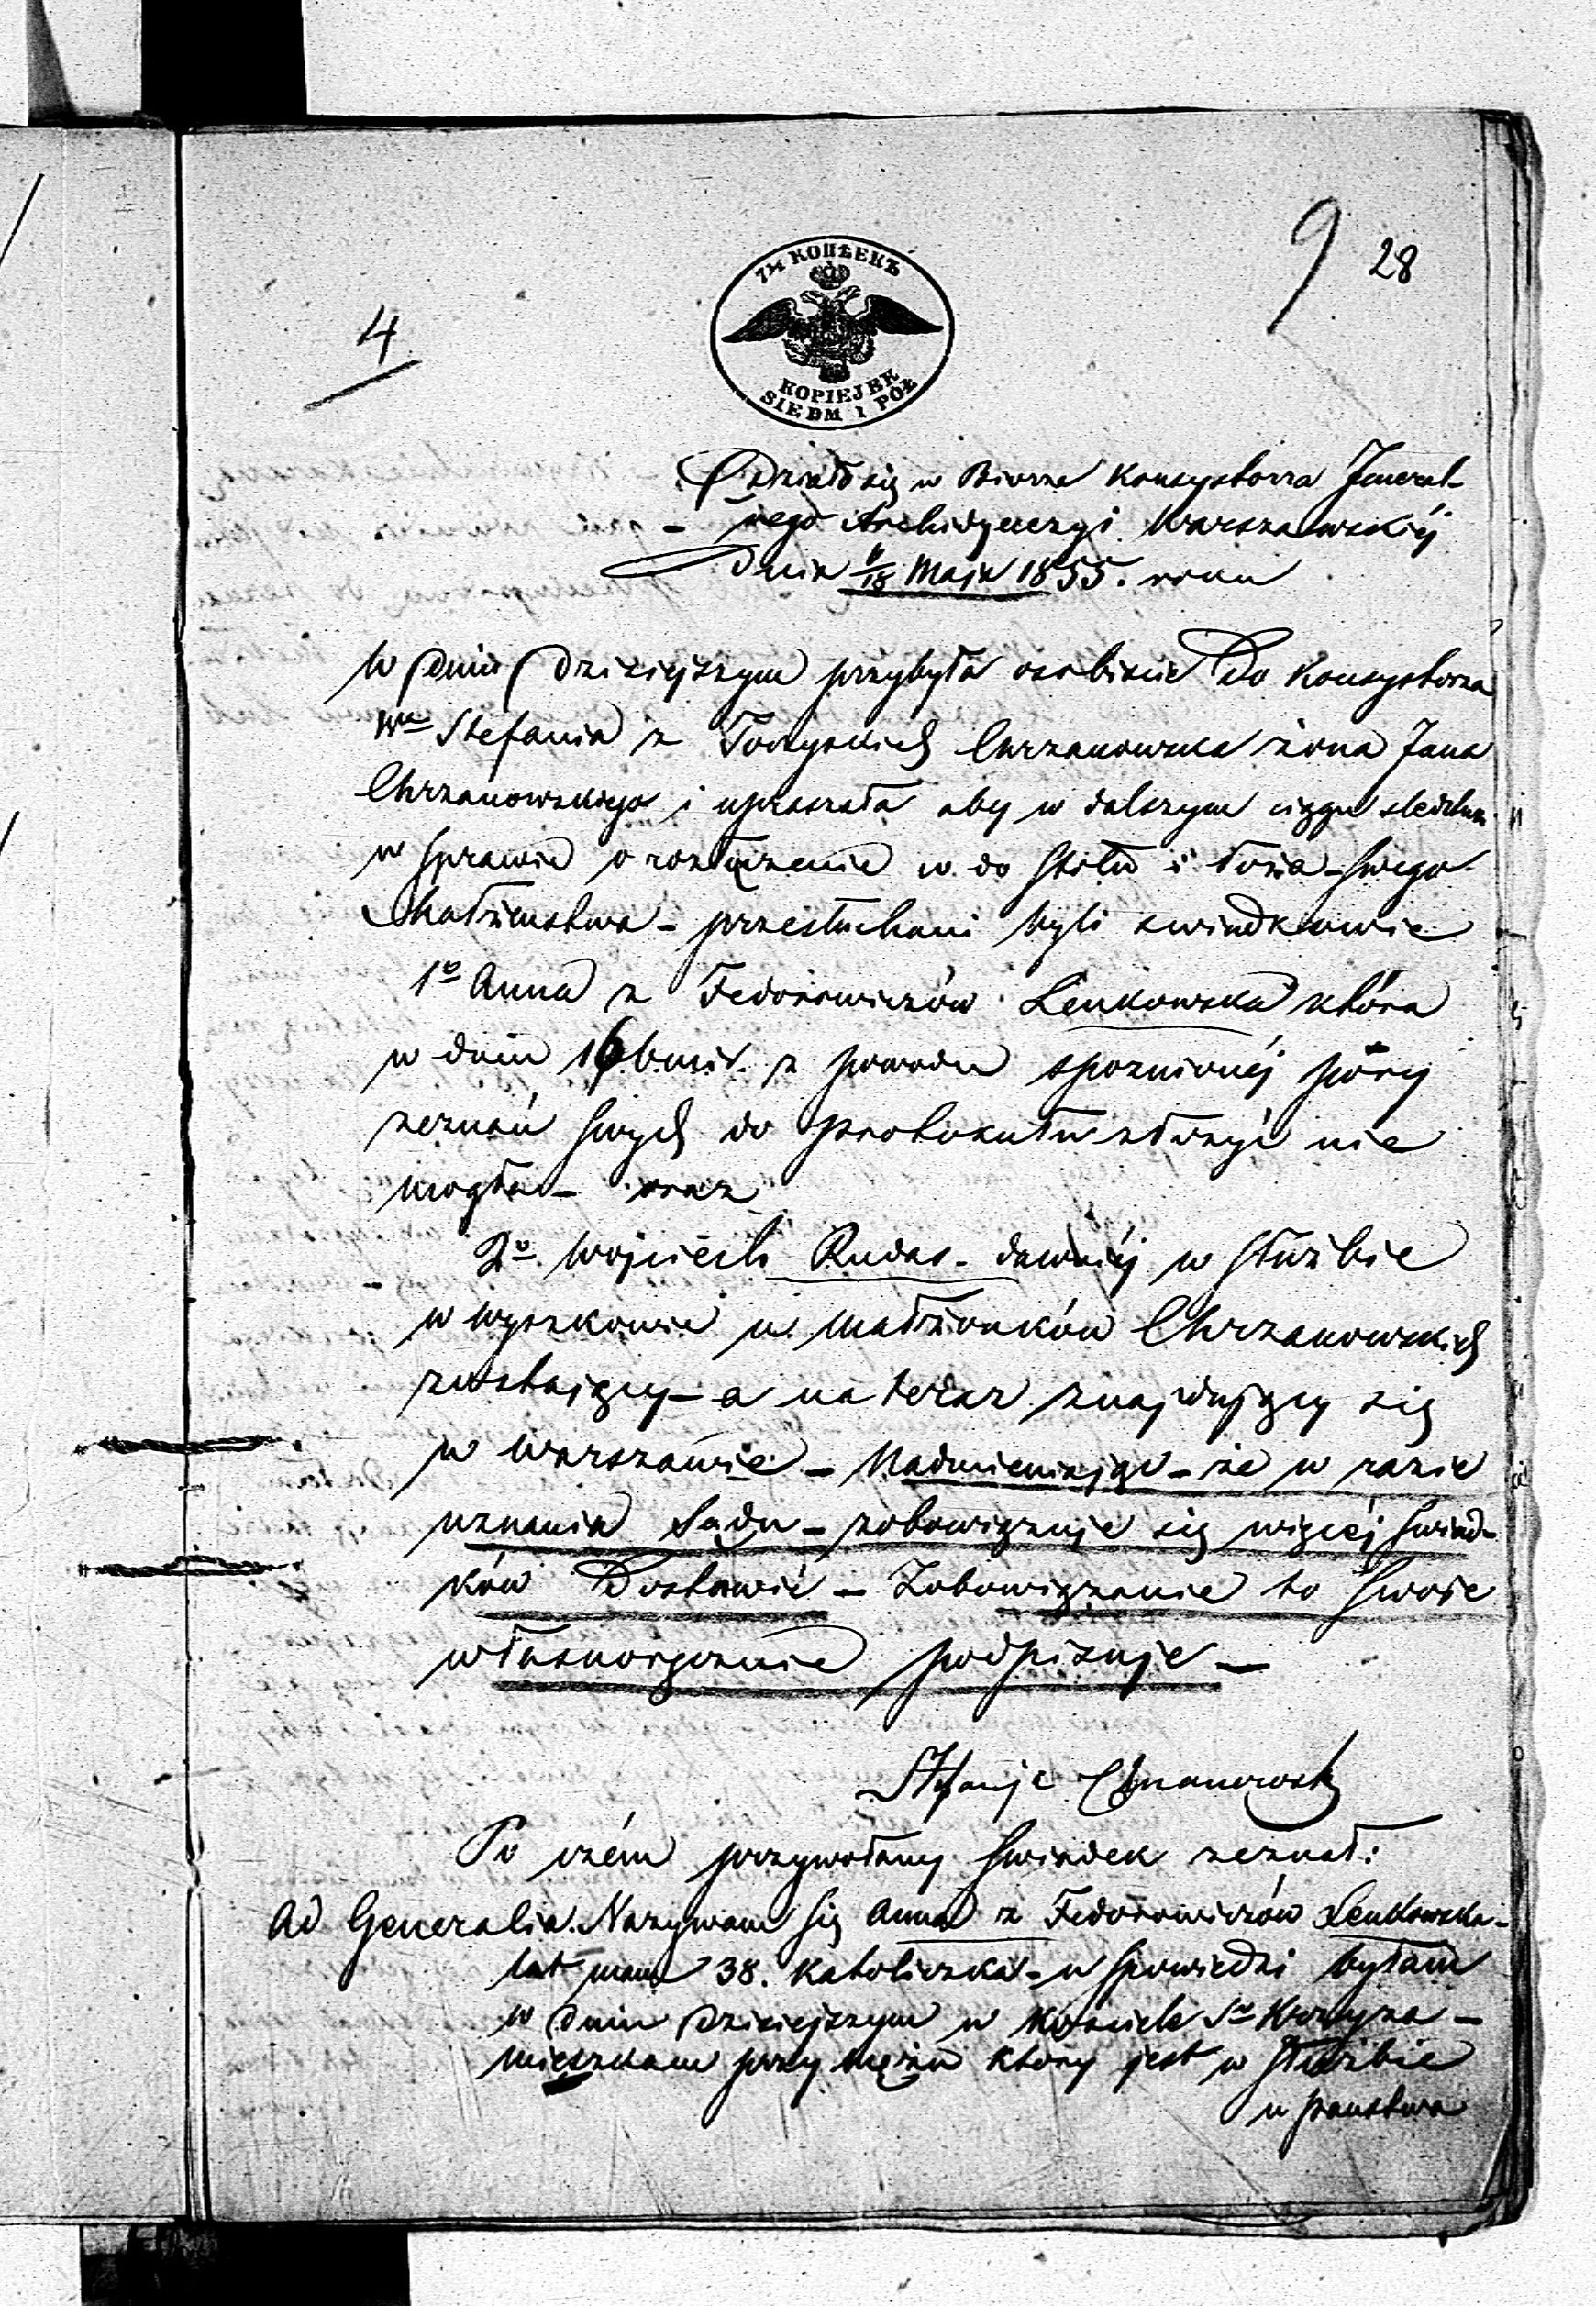 9 28
4
7½ КОПѢЕКЪ
KOPIEJEK
SIEDM I PÓŁ
Działo się w Biorze Konsystorza Jeneral-
nego Archidyecezyi Warszawskiéj
Dnia 6/18 Maja 1855. roku
W Dniu Dzisiejszym przybyła osobiscie Do Konsystorza
Wna Stefania z Toczyskich Chrzanowska żona Jana
Chrzanowskiego i upraszała aby w dalszym ciągu sledztwa
w sprawie o rozłączenie w. do stołu i łoża - swego
Małżenstwa - przesłuchani byli swiadkowie
1o Anna z Fedorowiczów Lenkowska która
w dniu 16 b. m. i r. z powodu spoznionéj póry
zeznań swych do protokułu złożyć nie
mogła - oraz
2o Wojciech Rudas - dawniéj w służbie
w Wyszkowie u małżonków Chrzanowskich
zostający - a na teraz znajdujący się
w Warszawie - Nadmieniając - że w razie
uznania Sądu - zobowiązuje się więcéj swiad-
ków Dostawić - Zobowiązanie to swoje
własnoręcznie podpisuje -
Stefanja Chrzanowska
Po czém przywołany swiadek zeznał:
Ad Generalia. Nazywam się Anna z Fedorowiczów Lenkowska -
lat mam 38. Katoliczka - u spowiedzi byłam
w Dniu Dzisiejszym w Kosciele Sgo Krzyża -
mieszkam przy mężu który jest w służbie
u panstwa